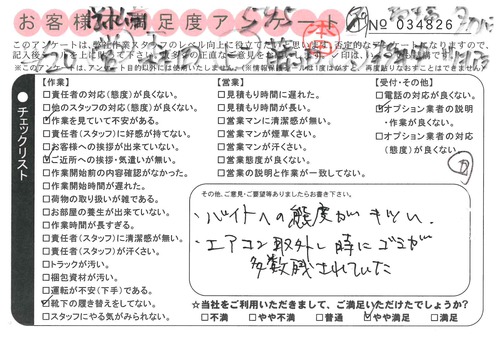 お客様満足度アンケート
№ 034826
このアンケートは、弊社作業スタッフのレベル向上に役立てたいと思います。否定的なアンケートになりますので、
【作業】
□責任者の対応(態度)が良くない。
□他のスタッフの対応(態度)が良くない。
☑作業を見ていて不安がある。
□責任者(スタッフ)に好感が持てない。
□お客様への挨拶が出来ていない。
☑ご近所への挨拶・気遣いが無い。
□作業開始前の内容確認がなかった。
□作業開始時間が遅れた。
□荷物の取り扱いが雑である。
□お部屋の養生が出来ていない。
□作業時間が長すぎる。
□責任者(スタッフ)に清潔感が無い。
□責任者(スタッフ)が汗くさい。
□トラックが汚い。
□梱包資材が汚い。
□運転が不安(下手)である。
☑靴下の履き替えをしてない。
□スタッフにやる気がみられない。
【営業】
□見積もり時間に遅れた。
□見積もり時間が長い。
□営業マンに清潔感が無い。
□営業マンが煙草くさい。
□営業マンが汗くさい。
□営業態度が良くない。
□営業の説明と作業が一致してない。
【受付・その他】
□電話の対応が良くない。
☑オプション業者の説明
・作業が良くない。
□オプション業者の対応
(態度)が良くない。
チェックリスト
その他、ご意見・ご要望等ありましたらお書き下さい。
・バイトへの態度がキツい.
・エアコン取外し時にゴミが
多数残されていた
☆当社をご利用いただきまして、ご満足いただけたでしょうか?
□不満 □やや不満 □普通 ☑やや満足 □満足